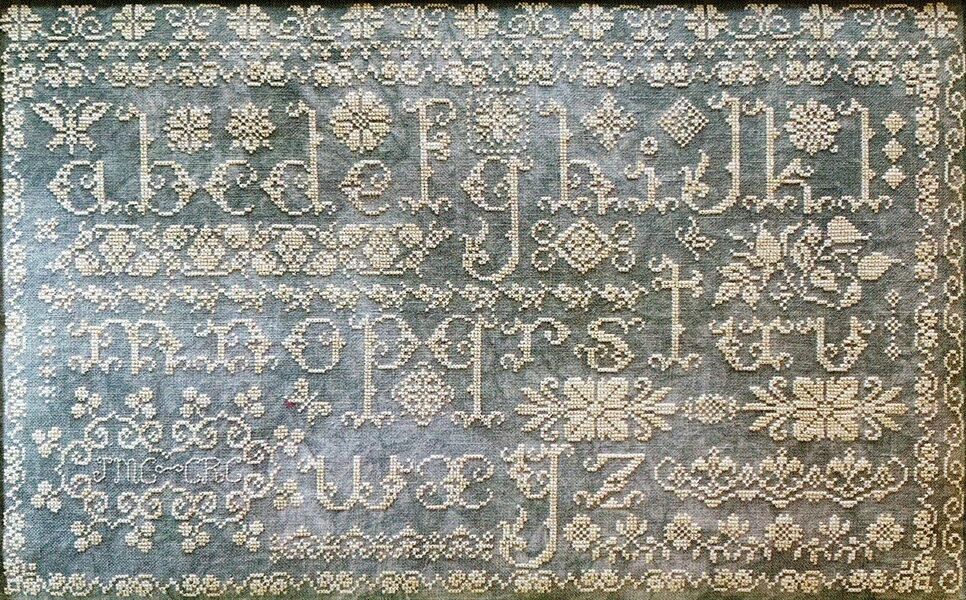 a b c d e f g h i j k l
m n o p q r s t u v
JMC CRC
w x y z